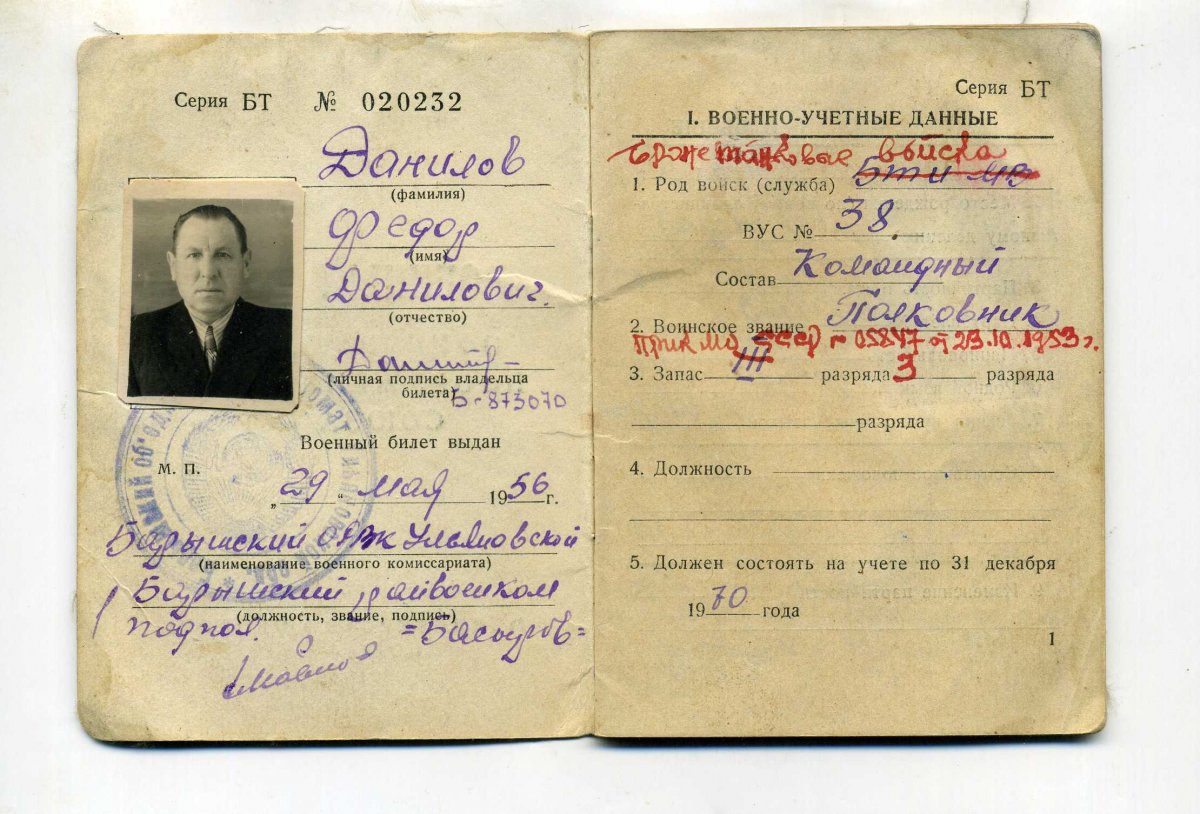 Серия БТ № 020232
Данилов
(фамилия)
Федор
(имя)
Данилович.
(отчество)
(личная подпись владельца
билета)
Б-873070
Военный билет выдан
М. П.
„29“ мая 1956 г.
Барышский ОРВК Ульяновской
(наименование военного комиссариата)
Барышский райвоенком
(должность, звание, подпись)
подпол.
Серия БТ
I. ВОЕННО-УЧЕТНЫЕ ДАННЫЕ
Бронетанковые войска
1. Род войск (служба) БТ и МВ
ВУС № 38
Состав Командный
2. Воинское звание Полковник
Прик МО СССР № 05847 от 23.10.1953 г.
3. Запас III разряда 3 разряда
разряда
4. Должность
5. Должен состоять на учете по 31 декабря
1970 года
1